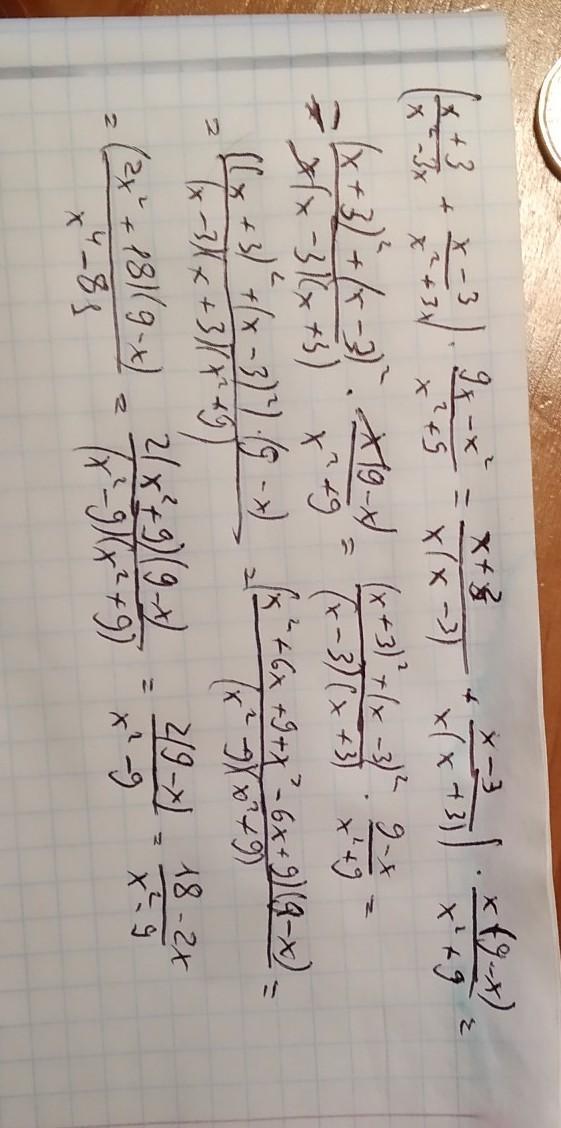 (x+3/x²-3x + x-3/x²+3x) · 9x-x²/x²+9 = x+3/x(x-3) + x-3/x(x+3)) · x(9-x)/x²+9 =
= (x+3)²+(x-3)²/x(x-3)(x+3) · x(9-x)/x²+9 = (x+3)²+(x-3)²/(x-3)(x+3) · 9-x/x²+9 =
= ((x+3)²+(x-3)²)·(9-x)/(x-3)(x+3)(x²+9) = (x²+6x+9+x²-6x+9)(9-x)/(x²-9)(x²+9) =
= (2x²+18)(9-x)/x⁴-81 = 2(x²+9)(9-x)/(x²-9)(x²+9) = 2(9-x)/x²-9 = 18-2x/x²-9